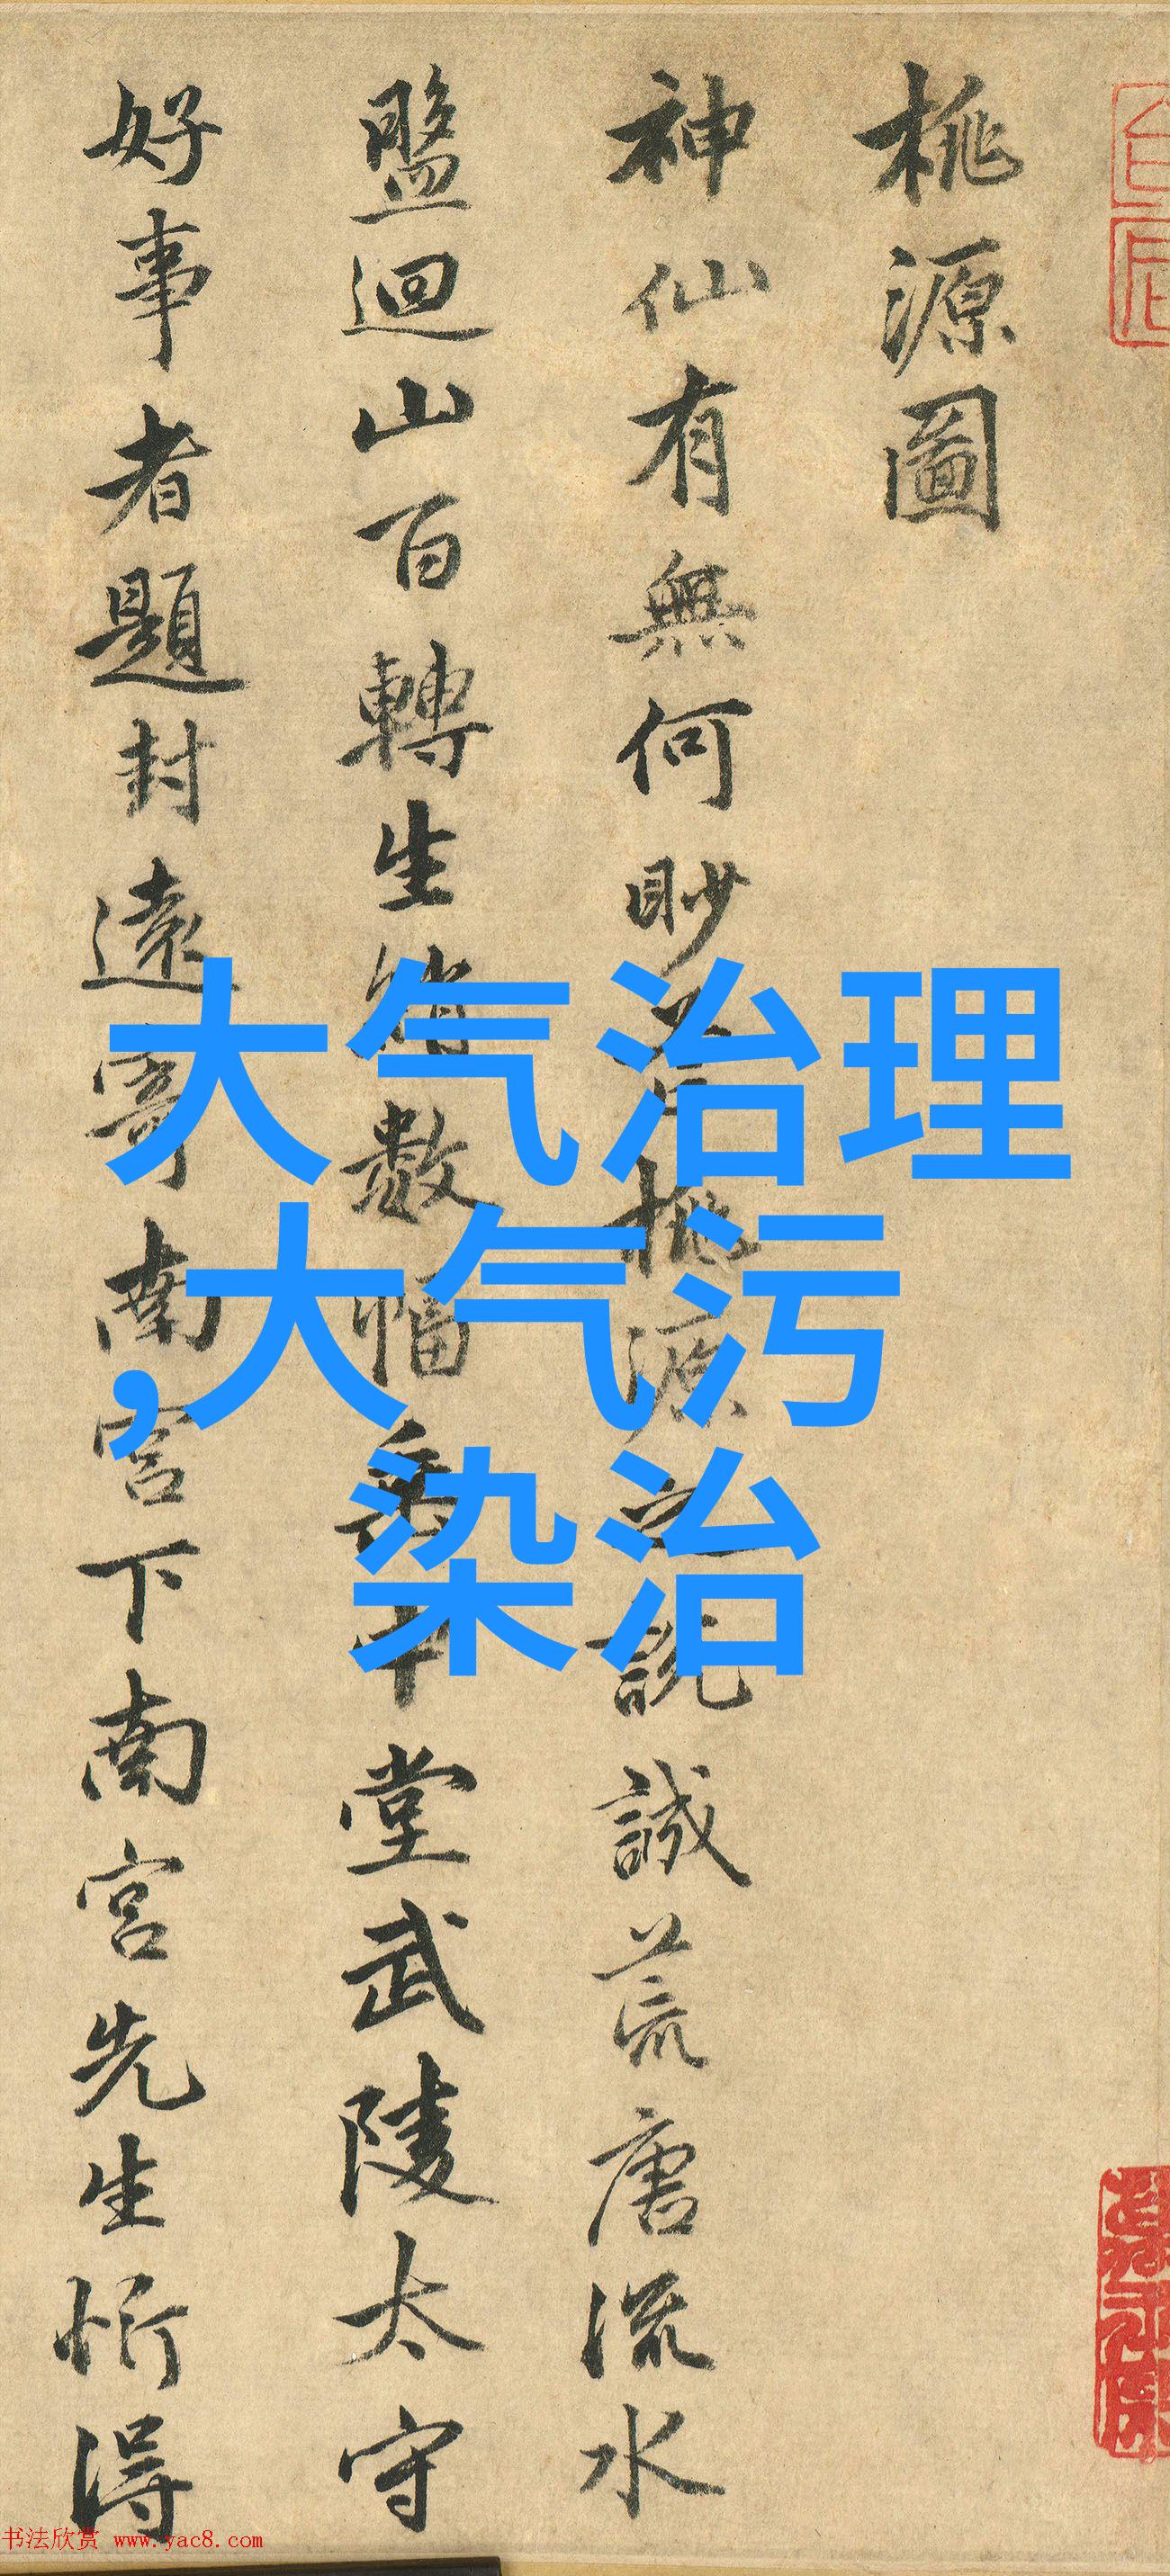 桃源圖
神仙有無何眇芒桃源之說誠荒唐流水
盤迴山百轉生綃數幅垂中堂武陵太守
好事者題封遠寄南宮下南宮先生忻得
大气治理
,大气污
染治
书法欣赏 www.yac8.com